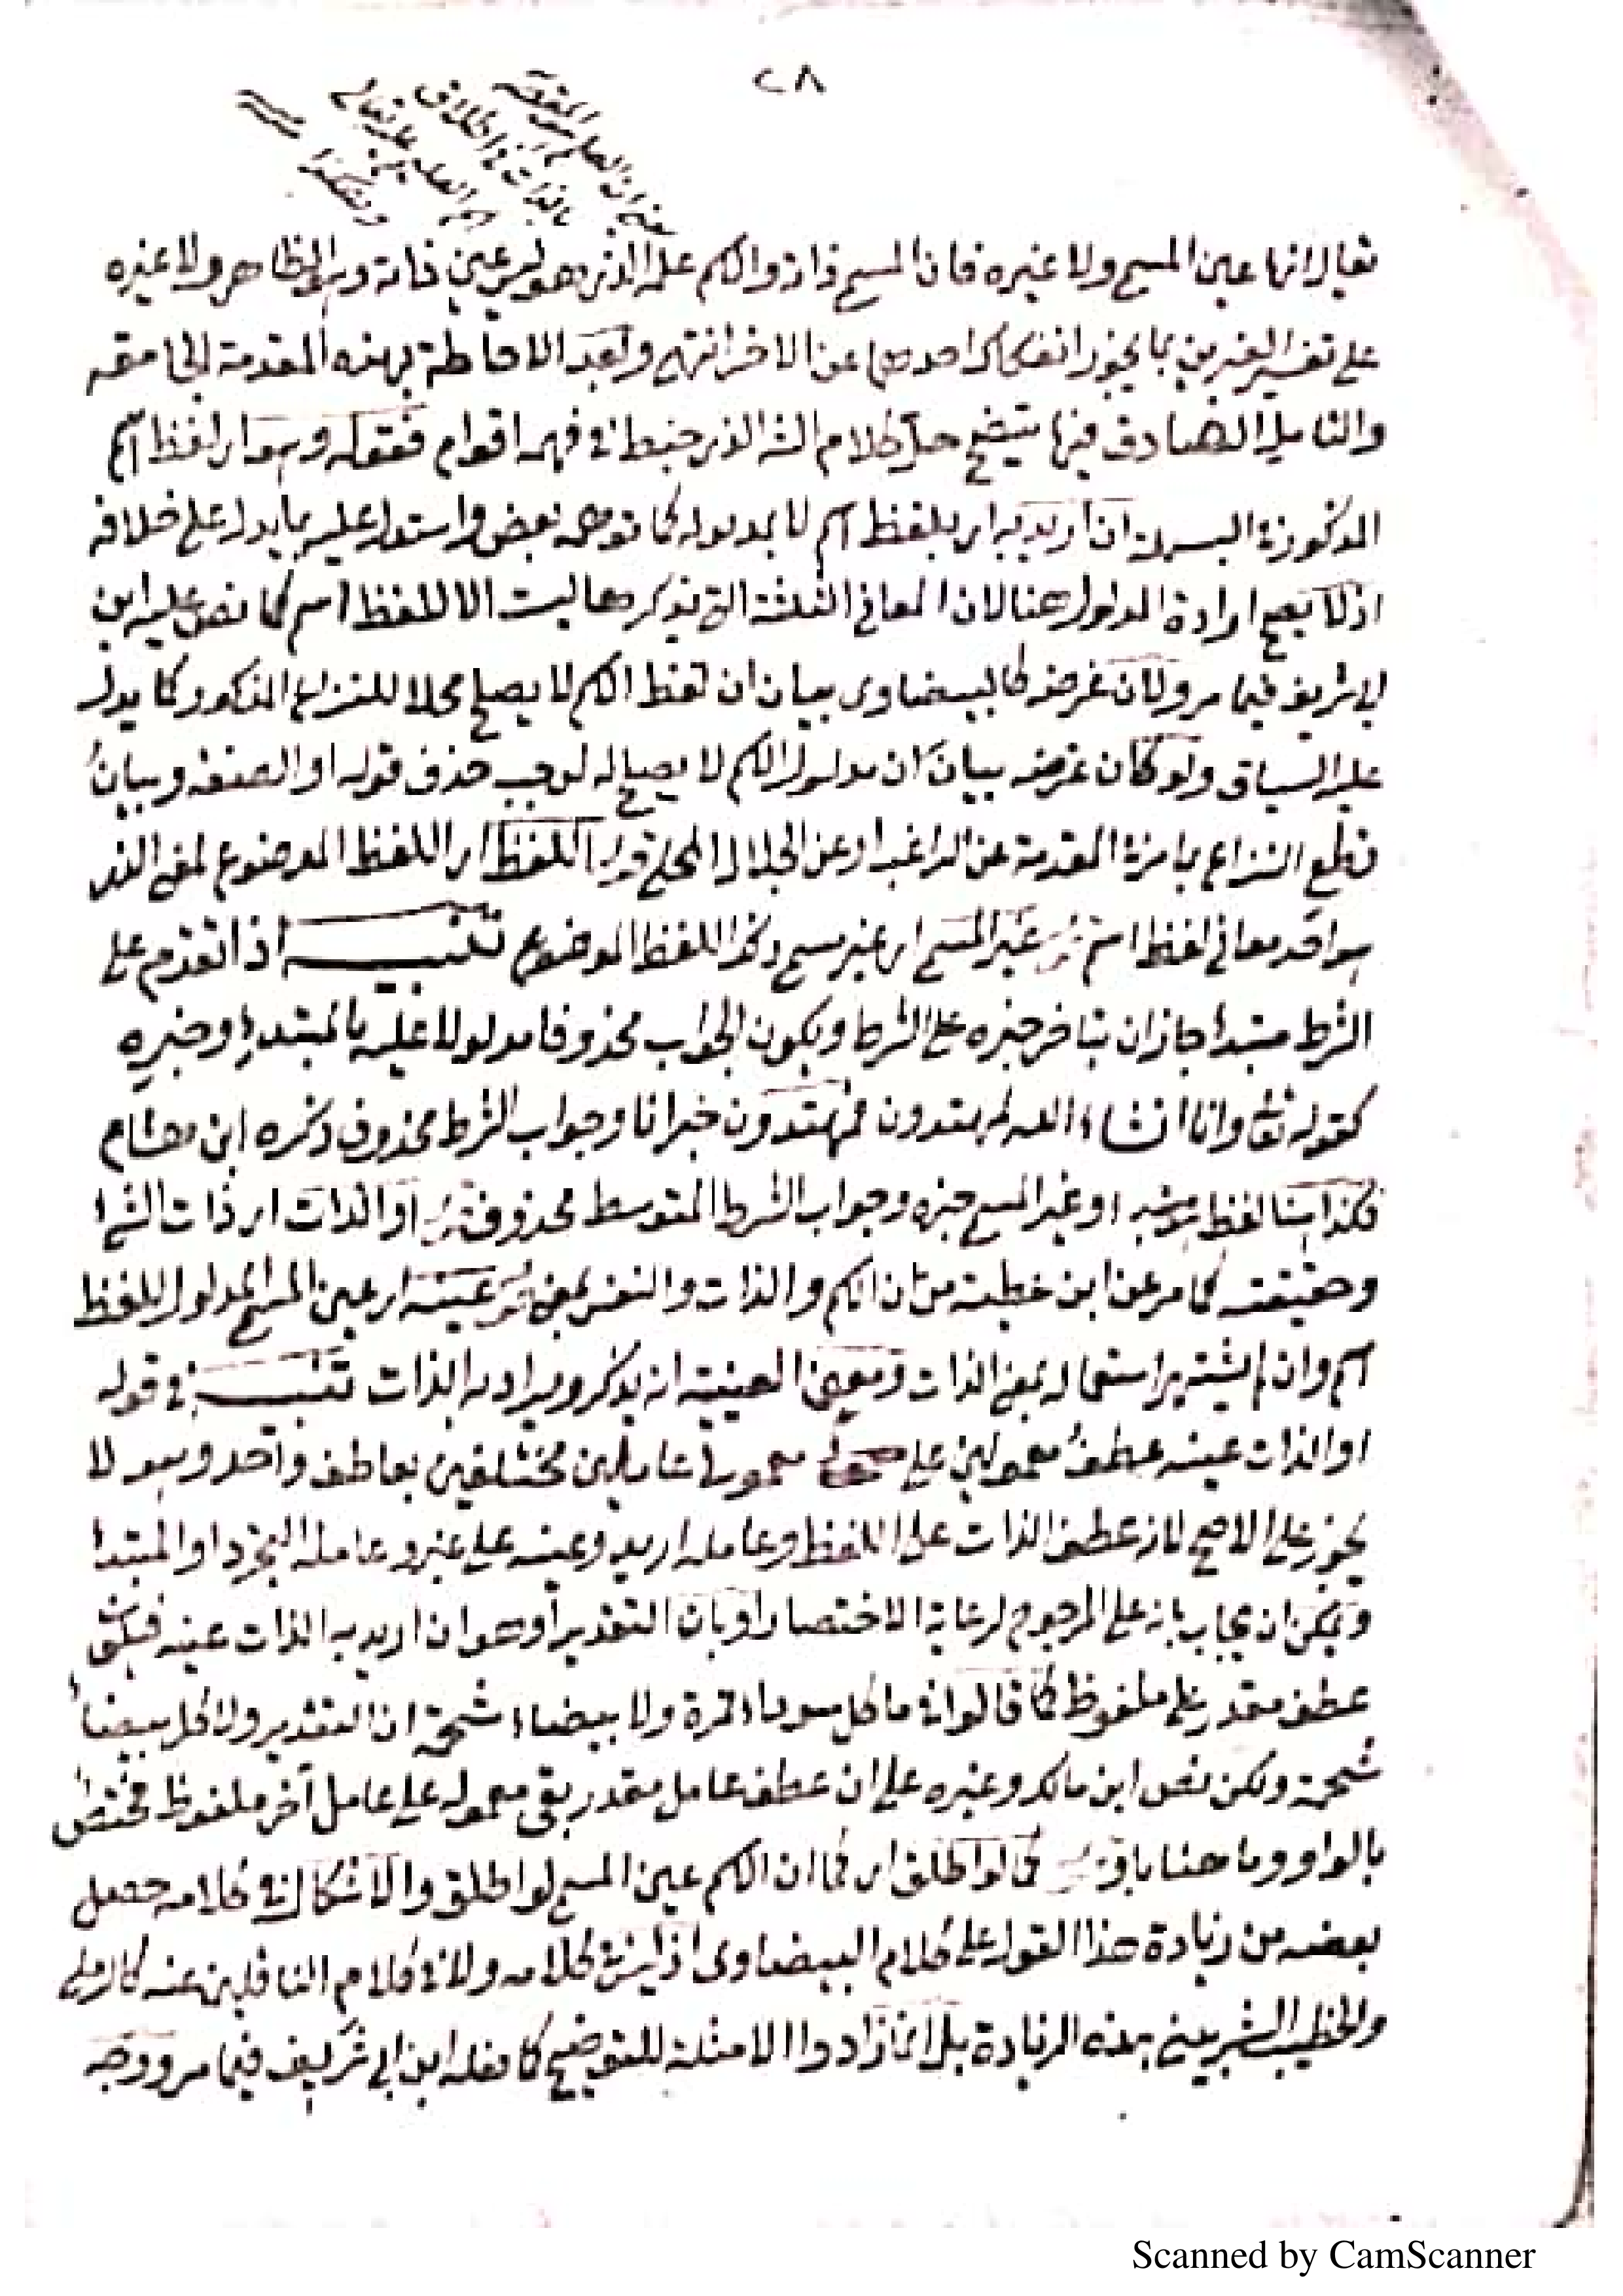 ٢٨
يقال انها عين المسمى ولا غيره فان المسمى ذات والاسم علمه الذي هو ليس عين ذاته وهو الظاهر ولا غيره
على تفسير الغيرين بما يجوز انفكاك احدهما عن الاخر انتهى وبعد الاحاطة بهذه المقدمة الى حقه
والتامل الصادق فيها يتضح حل كلام الش الذي خبط في فهمه اقوام فقوله وهو اي لفظ اسم
المذكور في البسملة ان اريد به اي بلفظ اسم لا بمدلوله كما توهمه بعض واستدل عليه بما يدل على خلافه
اذ لا يصح ارادة المدلول هنا لان المعاني الثلثة التي يذكرها ليست الا للفظ اسم كما نص عليه ابن
ابي شريف فيما مر ولان غرضه كالبيضاوى بيان ان لفظ الاسم لا يصلح محلا للنزاع المذكور كما يدل
عليه السياق ولو كان غرضه بيان ان مدلول الاسم لا يصلح له لوجب حذف قوله او الصفة وبيان
قطع النزاع بما مر في المقدمة عن الراغب او عن الجلال المحلي قوله اللفظ اي اللفظ الموضوع لمعنى الذي
هو احد معاني لفظ اسم غير المسمى اي غير مسمى ذلك اللفظ الموضوع تنبيه اذا تقدم على
الشرط مبتدا جاز ان يتاخر خبره على الشرط ويكون الجواب محذوفا مدلولا عليه بالمبتدا وخبره
كقوله تعالى وانا ان شاء الله لمهتدون فمهتدون خبر انا وجواب الشرط محذوف ذكره ابن هشام
فكذا هنا لفظ هو مبتدا وغير المسمى خبره وجواب الشرط المتوسط محذوف قوله او الذات اي ذات الشئ
وحقيقته كما مر عن ابن عطية من ان الاسم والذات والنفس بمعنى قوله عينه اي عين المسمى المدلول للفظ
اسم وان لم يشتهر استعماله بمعنى الذات ومعنى العينية انه يذكر ويراد به الذات تنبيه في قوله
او الذات عينه عطف معمولين على معمولي عاملين مختلفين بعاطف واحد وهو لا
يجوز على الاصح لانه عطف الذات على اللفظ وعامله اريد وعينه على غير وعامله التجرد او المبتدا
ويمكن ان يجاب بانه على المرجوح لرعاية الاختصار او بان التقدير او هو ان اريد به الذات عينه فيكون
عطف مقدر على ملفوظ كما قالوا في ما كل سوداء تمرة ولا بيضاء شحمة ان التقدير ولا كل بيضاء
شحمة ولكن نص ابن مالك وغيره على ان عطف عامل مقدر بقي معموله على عامل آخر ملفوظ مختص
بالواو وما هنا باو قوله كما لو اطلق اي كما ان الاسم عين المسمى لو اطلق والاشكال في كلامه حصل
بعضه من زيادة هذا القول على كلام البيضاوى اذ ليس في كلامه ولا في كلام الناقلين عنه كالرملي
والخطيب الشربيني هذه الزيادة بل انما زادوا الامثلة للتوضيح كما فعله ابن ابي شريف فيما مر ووجه
Scanned by CamScanner